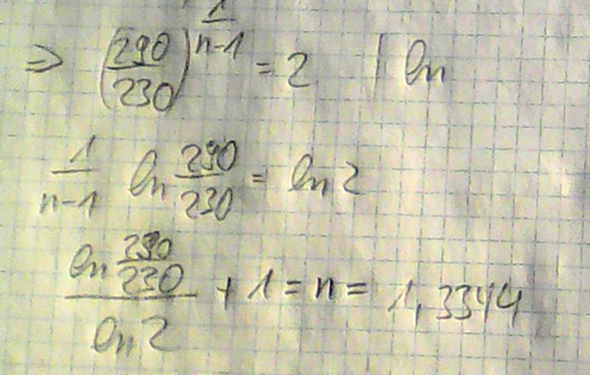 ⇒ (290/230)^(1/(n-1)) = 2 | ln
1/(n-1) ln 290/230 = ln 2
(ln 290/230)/(ln 2) + 1 = n = 1,3344